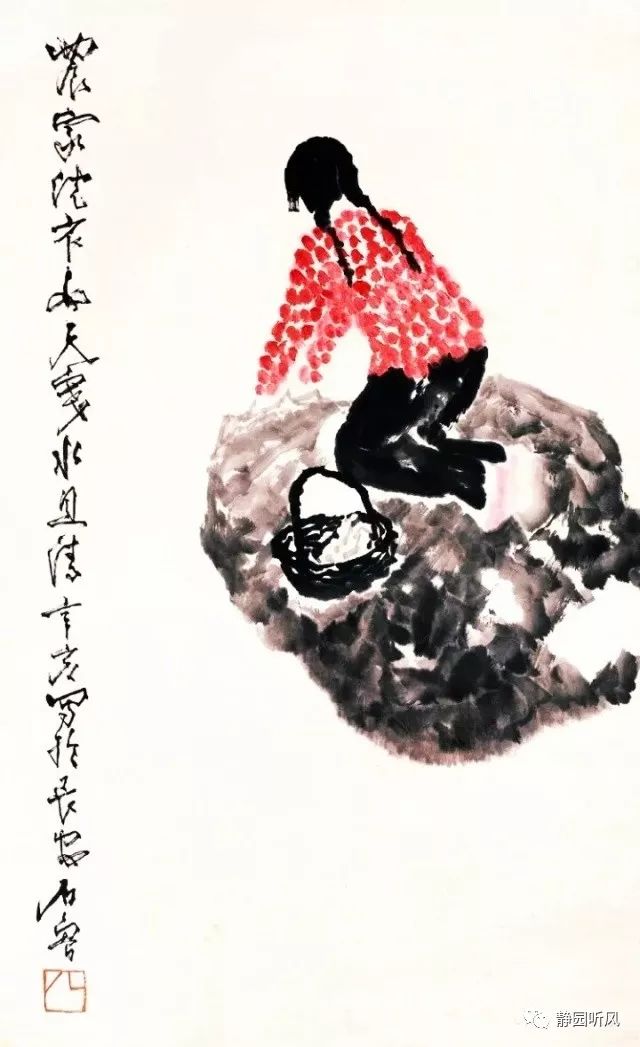 農家洗衣女天寒水且清辛亥寫於長安石魯
静园听风